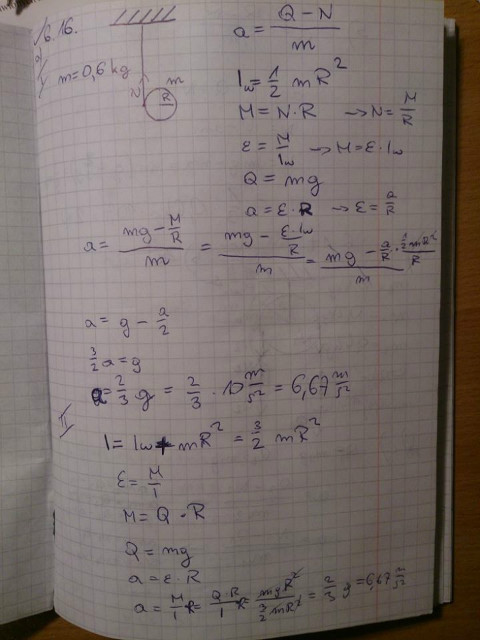 16.16.
a)
m = 0,6 kg
N
R
m
a = \frac{Q - N}{m}
I_w = \frac{1}{2} mR^2
M = N · R → N = \frac{M}{R}
ε = \frac{M}{I_w} → M = ε · I_w
Q = mg
a = ε · R → ε = \frac{a}{R}
a = \frac{mg - \frac{M}{R}}{m} = \frac{mg - \frac{ε · I_w}{R}}{m} = \frac{mg - \frac{a}{R} · \frac{\frac{1}{2} mR^2}{R}}{m}
a = g - \frac{a}{2}
\frac{3}{2} a = g
a = \frac{2}{3} g = \frac{2}{3} · 10 \frac{m}{s^2} = 6,67 \frac{m}{s^2}
II
I = I_w + mR^2 = \frac{3}{2} mR^2
ε = \frac{M}{I}
M = Q · R
Q = mg
a = ε · R
a = \frac{M}{I} R = \frac{Q · R}{I} R = \frac{mgR^2}{\frac{3}{2} mR^2} = \frac{2}{3} g = 6,67 \frac{m}{s^2}